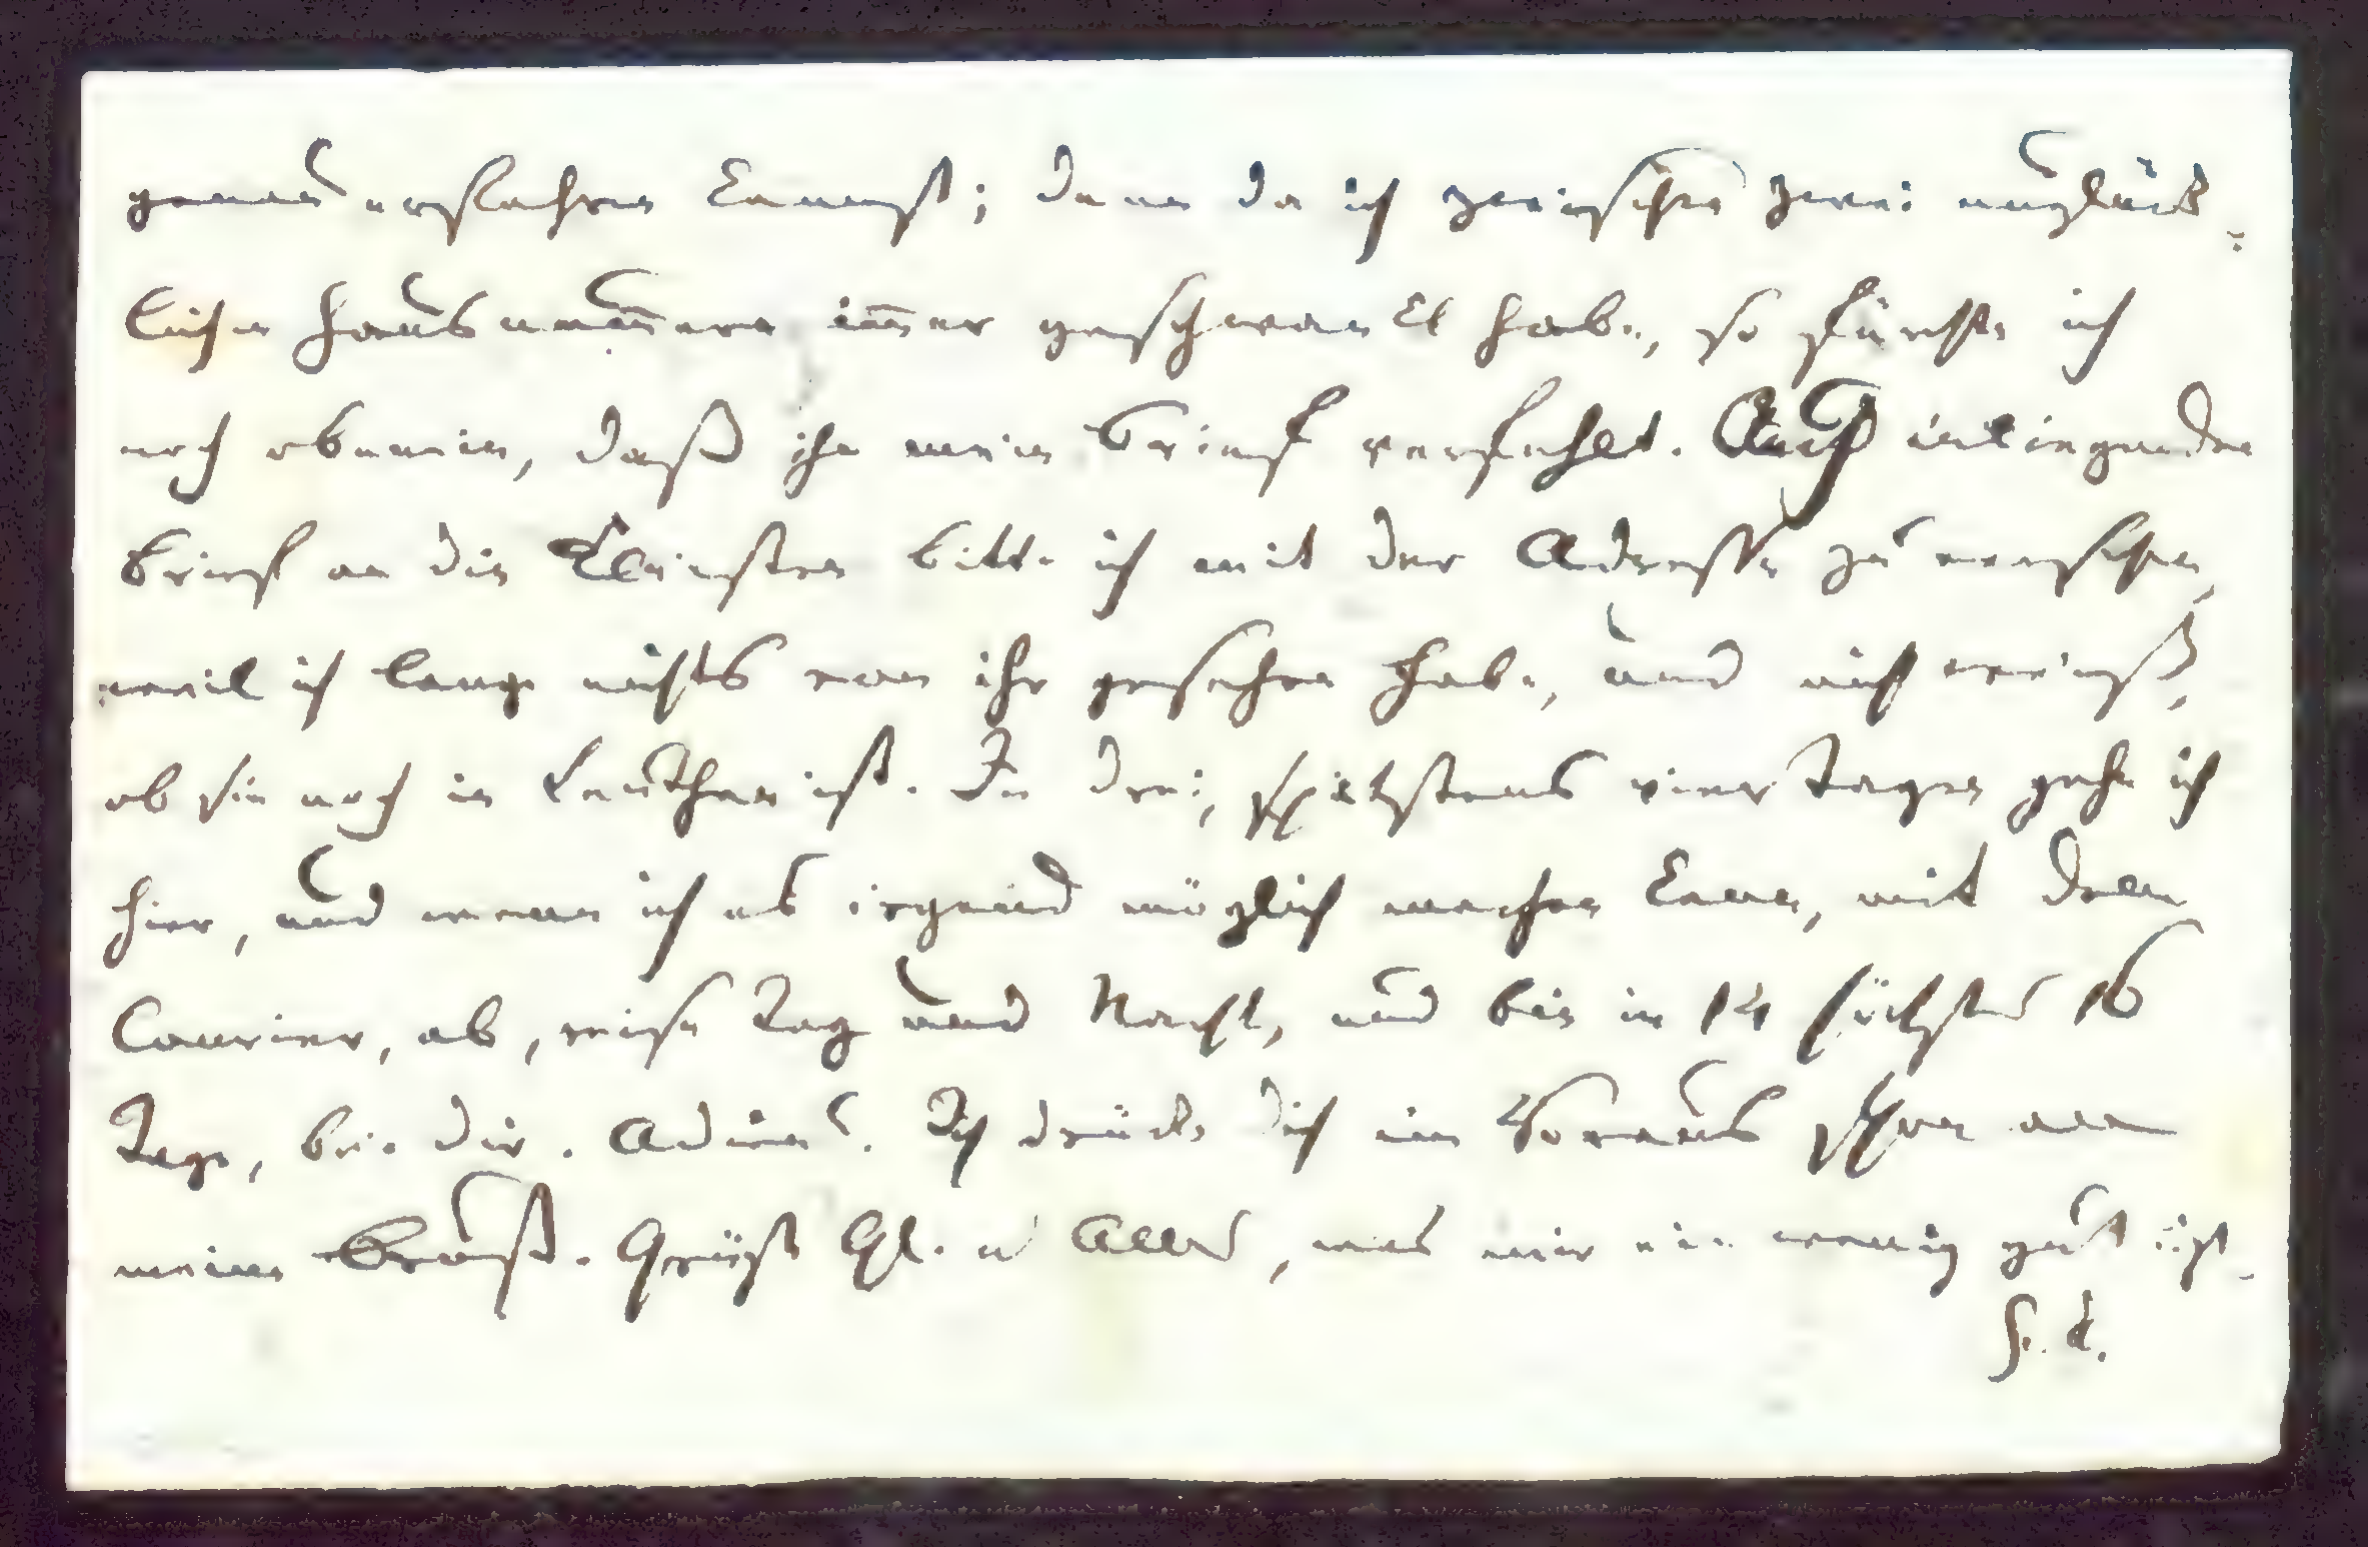 genau erfahren kannst; denn da ich zwischen zwei unglück-
lichen Hausnummern immer geschwankt habe, so fürchte ich
noch obenein, daß ihn mein Brief verfehlt. Auch inliegenden
Brief an die Kleinsten bitte ich mit der Adresse zu versehen,
weil ich lange nichts von ihr gesehen habe, und nicht weiß,
ob sie noch in Leuthen ist. In drei, spätstens vier Tagen gehe ich
hier, und wenn ich es irgend möglich machen kann, mit dem
Courier, ab, reise Tag und Nacht, und bin in 14 höchstens 16
Tage, bei Dir. Adieu. Ich drücke Dich im Voraus schon an
meine Brust. Grüße Gl. u Alles, was mir ein wenig gut ist.